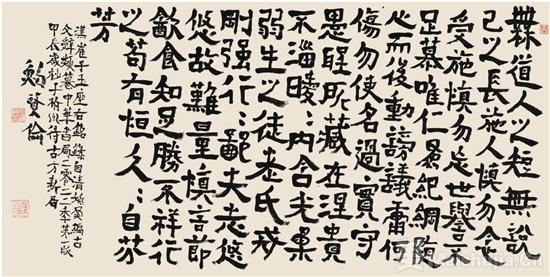 無道人之短無說
己之長施人慎勿念
受施慎勿忘世譽不
足慕唯仁為紀綱隱
心而後動謗議庸何
傷勿使名過實守
愚聖所臧在涅貴
不淄曖:內含光柔
弱生之徒老氏戒
剛強行:鄙夫志悠
悠故難量慎言節
飲食知足勝不祥行
之苟有恆久:自芬
芳
漢崔子玉座右銘錄自清姚鼐編古
文辭類纂中華書局二零二二年第一版
甲辰歲杪于杭州待古方新居
鮑賢倫